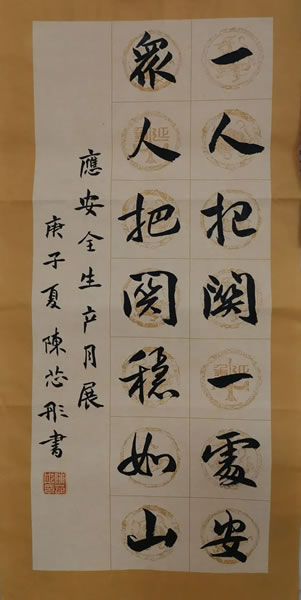 一人把関一處安
眾人把関穩如山
應安全生产月展
庚子夏陳芯彤書